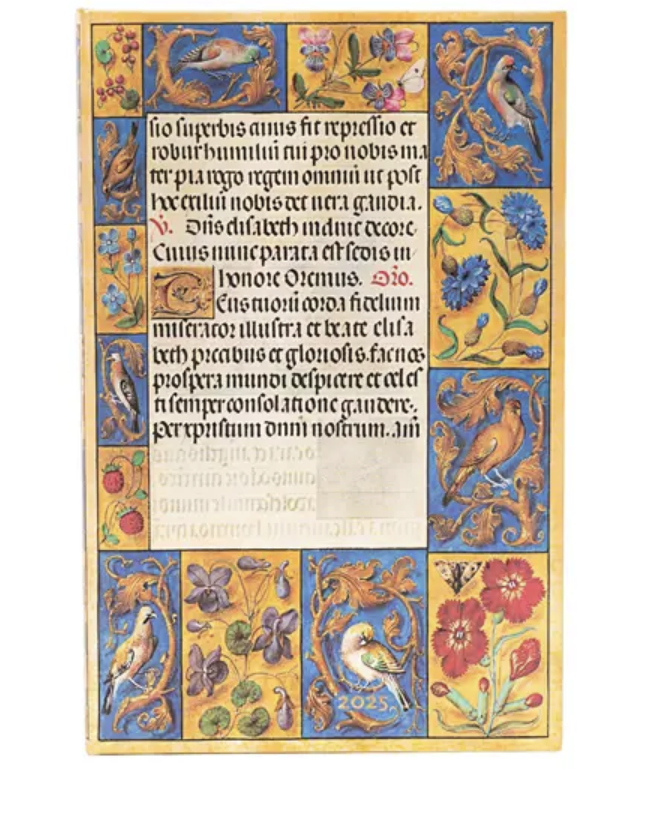 sio superbis cuius fit repressio et
robur humiliū tui pro nobis ma
ter pia rogo regem omniū ut post
hoc exiliū nobis det vera gaudia.
V. Dn̄s elisabeth induit decore.
Cuius nunc parata est sedis in
honore Oremus. Or̄o.
Eus tuorū corda fidelium
miserator illustra et beate elisa
beth precibus et gloriosis. fac nos
prospera mundi despicere et celes
ti semper consolatione gaudere.
Per xpristum dnm̄ nostrum. am̄
2025